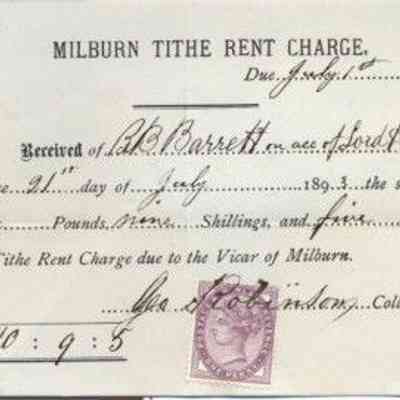 MILBURN TITHE RENT CHARGE.
Due July 1st
Received of R B Barrett on acc of Lord
21st day of July 1893 the s
Pounds nine Shillings, and five
Tithe Rent Charge due to the Vicar of Milburn.
Geo Robinson, Coll
0 : 9 : 5